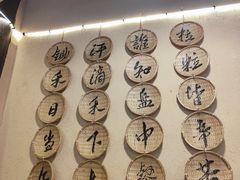 锄禾日当
汗滴禾下
誰知盘中
粒粒皆辛苦